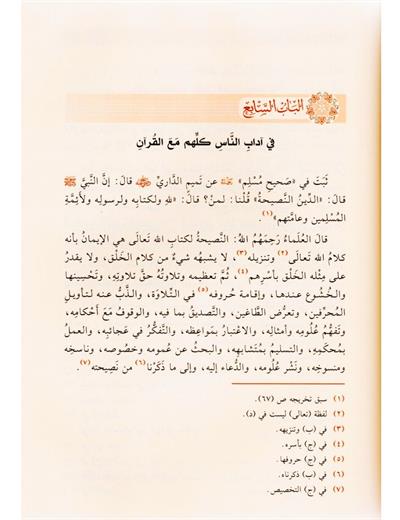 الباب السابع
في آدابِ النَّاسِ كلِّهم مَعَ القُرآنِ
ثَبَتَ في «صَحيحِ مُسْلِمٍ» ﷺ عن تَميمٍ الدَّاريِّ ﷺ قالَ: إنَّ النَّبيَّ ﷺ
قالَ: «الدِّينُ النَّصيحةُ» قُلْنا: لمنْ؟ قالَ: «للهِ ولكتابِه ولرسولِه ولأئِمَّةِ
المُسْلِمين وعامَّتِهم»(١).
قالَ العُلَماءُ رَحِمَهُمُ اللهُ: النَّصيحةُ لكتابِ اللهِ تَعالَى هي الإيمانُ بأنه
كلامُ اللهِ تعالَى(٢) وتنزيلُه(٣)، لا يشبهُه شيءٌ من كلامِ الخَلْقِ، ولا يقدرُ
على مِثْلِه الخَلْقُ بأسْرِهم(٤)، ثُمَّ تعظيمُه وتلاوتُه حقَّ تلاوتِه، وتَحْسينُها
والخُشوعُ عندَها، وإقامةُ حُروفِه(٥) في التِّلاوَةِ، والذَّبُّ عنه لتأويلِ
المُحرِّفين، وتعرُّضِ الطَّاغين، والتَّصديقُ بما فيه، والوقوفُ مَعَ أحْكامِه،
وتَفَهُّمُ عُلُومِه وأمثالِه، والاعْتِبارُ بمَواعِظِه، والتَّفكُّرُ في عَجائبِه، والعملُ
بمُحكَمِه، والتسليمُ بمُتَشابِهِه، والبحثُ عن عُمومِه وخصُوصِه، وناسخِه
ومنسوخِه، ونَشْرُ عُلُومِه، والدُّعاءُ إليه، وإلى ما ذَكَرْنا(٦) من نَصِيحتِه(٧).
(١) سبق تخريجه ص (٦٧).
(٢) لفظة (تعالى) ليست في (د).
(٣) في (ب) وتنزيهه.
(٤) في (ج) بأسره.
(٥) في (ج) حروفها.
(٦) في (ب) ذكرناه.
(٧) في (ج) التخصيص.